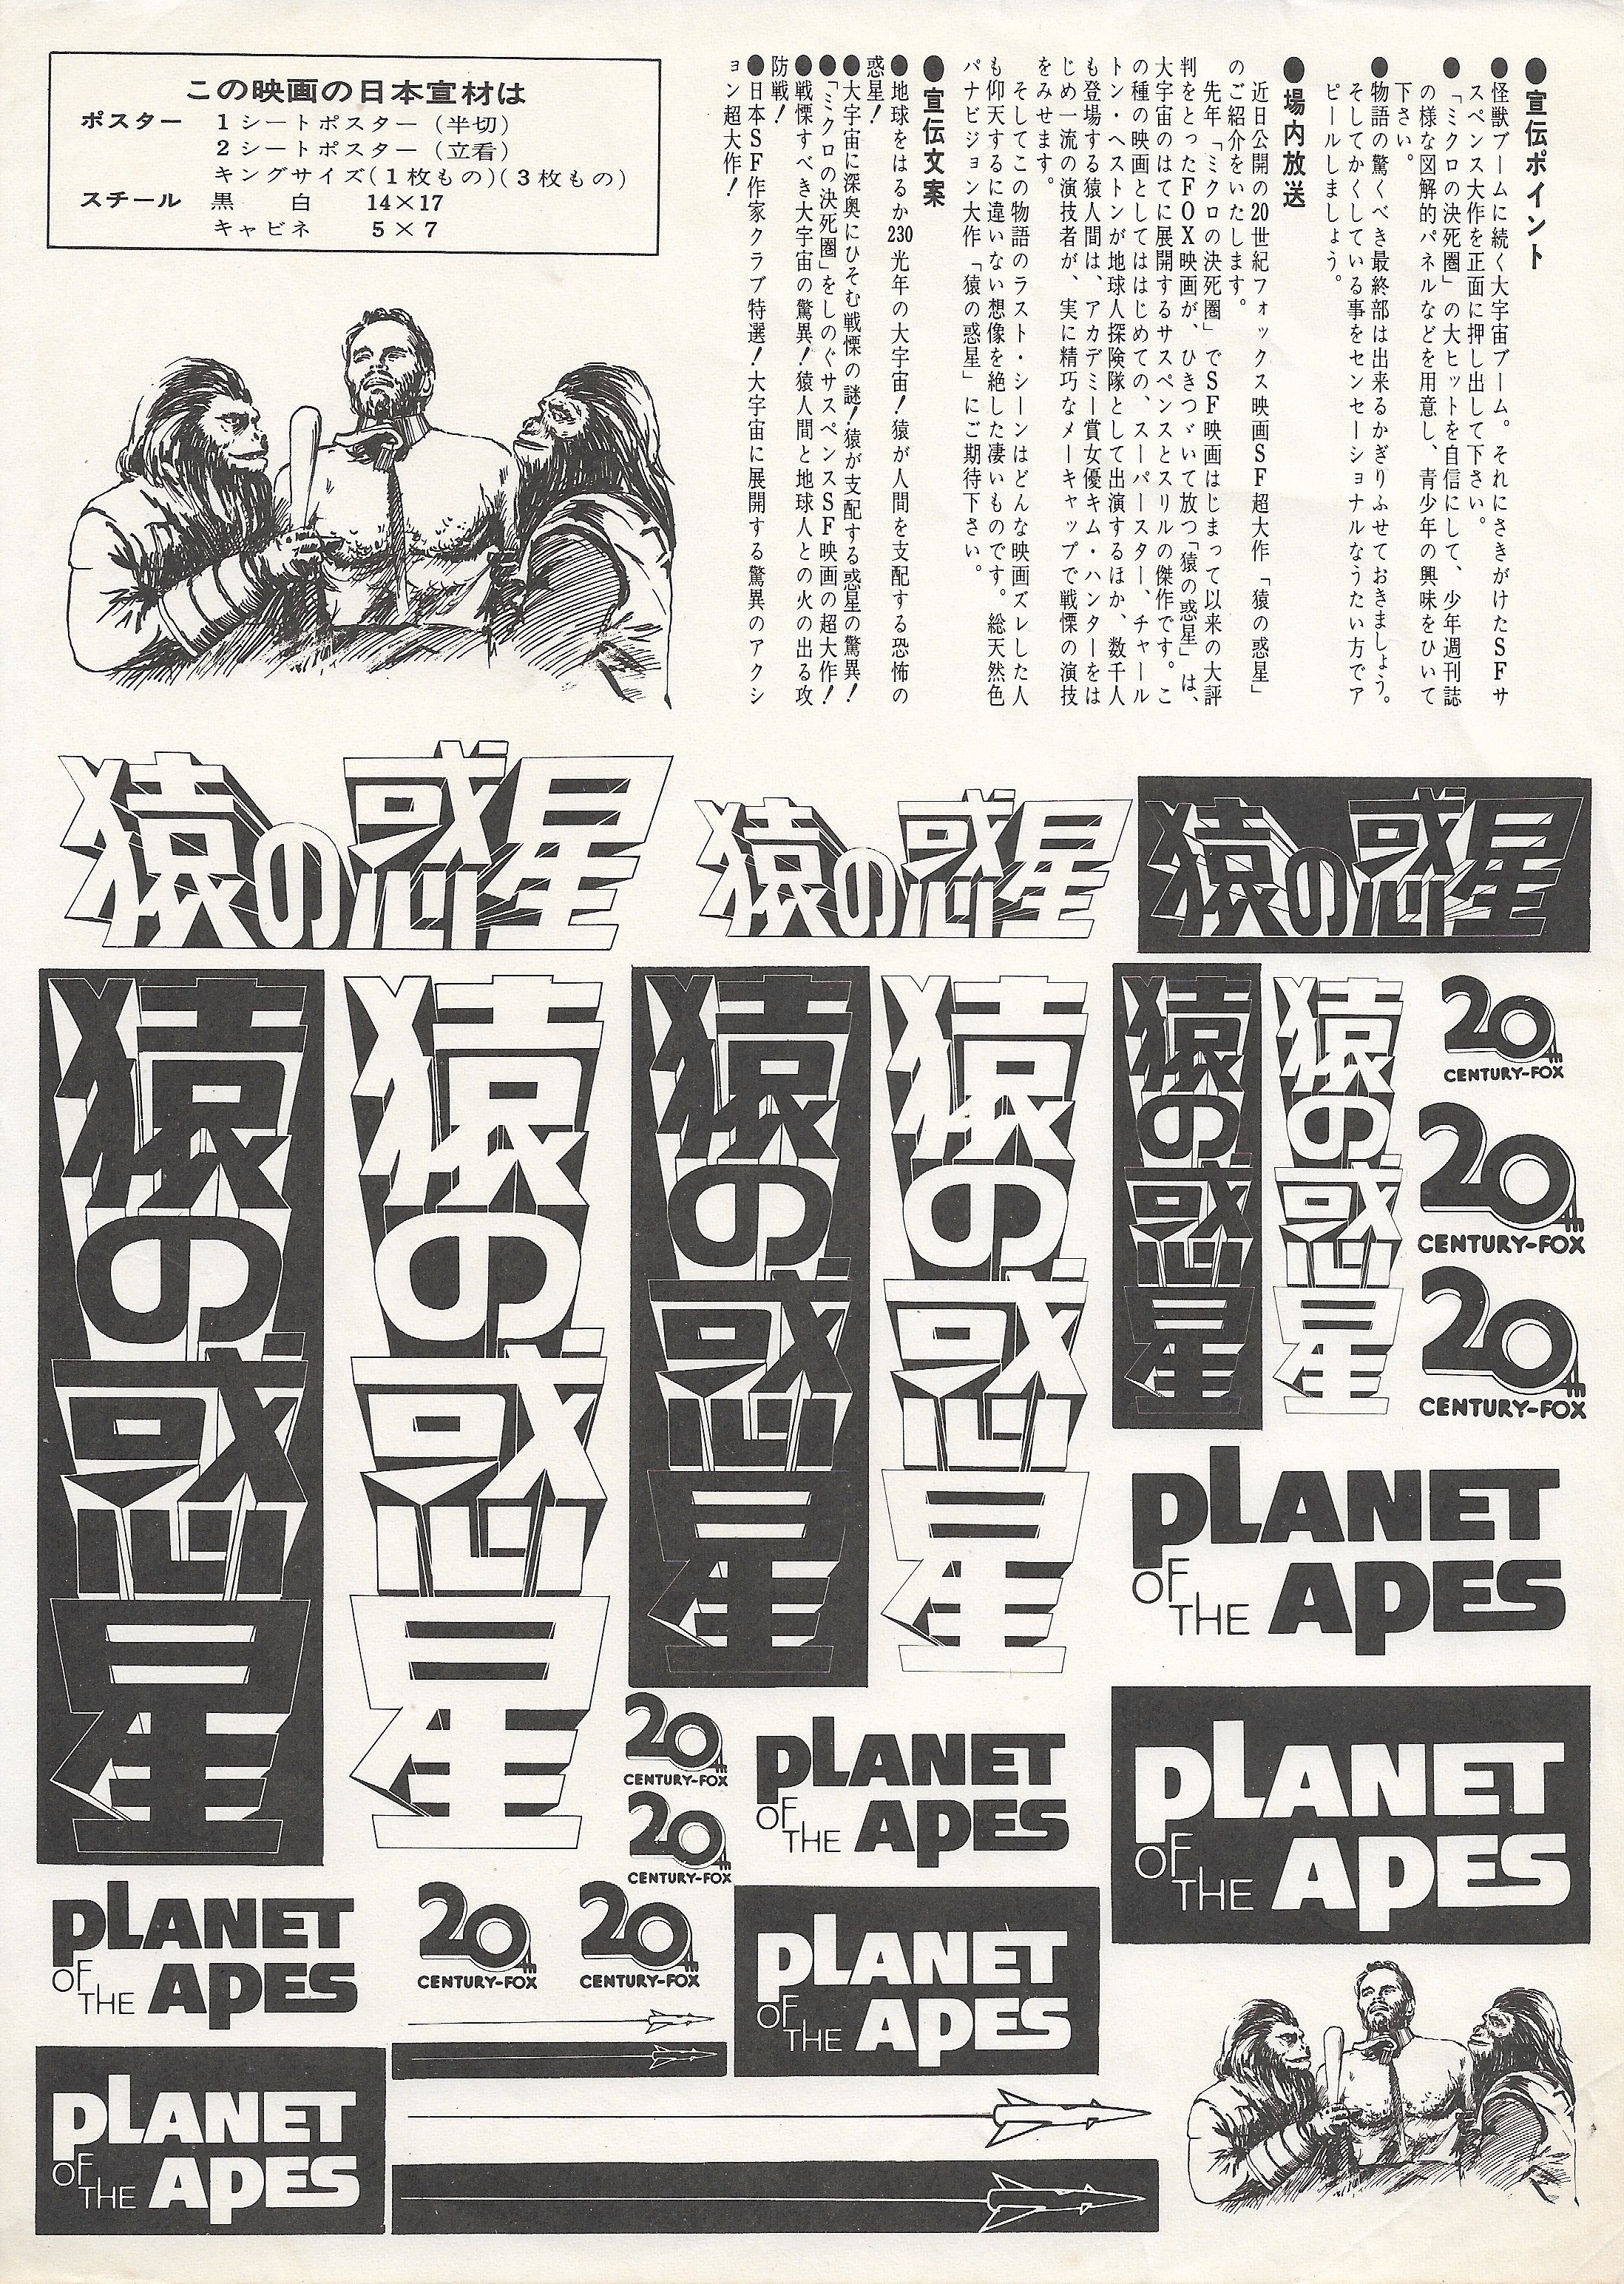 ●宣伝ポイント
●怪獣ブームに続く大宇宙ブーム。それにさきがけたSFサ
スペンス大作を正面に押し出して下さい。
●「ミクロの決死圏」の大ヒットを自信にして、少年週刊誌
の様な図解的パネルなどを用意し、青少年の興味をひいて
下さい。
●物語の驚くべき最終部は出来るかぎりふせておきましょう。
そしてかくしている事をセンセーショナルなうたい方でア
ピールしましょう。
●場内放送
近日公開の20世紀フォックス映画SF超大作「猿の惑星」
のご紹介をいたします。
先年「ミクロの決死圏」でSF映画はじまって以来の大評
判をとったFOX映画が、ひきつゞいて放つ「猿の惑星」は、
大宇宙のはてに展開するサスペンスとスリルの傑作です。こ
の種の映画としてははじめての、スーパースター、チャール
トン・ヘストンが地球人探険隊として出演するほか、数千人
も登場する猿人間は、アカデミー賞女優キム・ハンターをは
じめ一流の演技者が、実に精巧なメーキャップで戦慄の演技
をみせます。
そしてこの物語のラスト・シーンはどんな映画ズレした人
も仰天するに違いない想像を絶した凄いものです。総天然色
パナビジョン大作「猿の惑星」にご期待下さい。
●宣伝文案
●地球をはるか230光年の大宇宙!猿が人間を支配する恐怖の
惑星!
●大宇宙に深奥にひそむ戦慄の謎!猿が支配する惑星の驚異!
●「ミクロの決死圏」をしのぐサスペンスSF映画の超大作!
●戦慄すべき大宇宙の驚異!猿人間と地球人との火の出る攻
防戦!
●日本SF作家クラブ特選!大宇宙に展開する驚異のアクシ
ョン超大作!
この映画の日本宣材は
ポスター 1シートポスター(半切)
2シートポスター(立看)
キングサイズ(1枚もの)(3枚もの)
スチール 黒 白 14×17
キャビネ 5×7
猿の惑星
猿の惑星
猿の惑星
猿の惑星
猿の惑星
猿の惑星
猿の惑星
猿の惑星
猿の惑星
20th
CENTURY-FOX
20th
CENTURY-FOX
20th
CENTURY-FOX
PLANET
OF THE APES
20th
CENTURY-FOX
20th
CENTURY-FOX
PLANET
OF THE APES
PLANET
OF THE APES
PLANET
OF THE APES
20th
CENTURY-FOX
20th
CENTURY-FOX
PLANET
OF THE APES
PLANET
OF THE APES